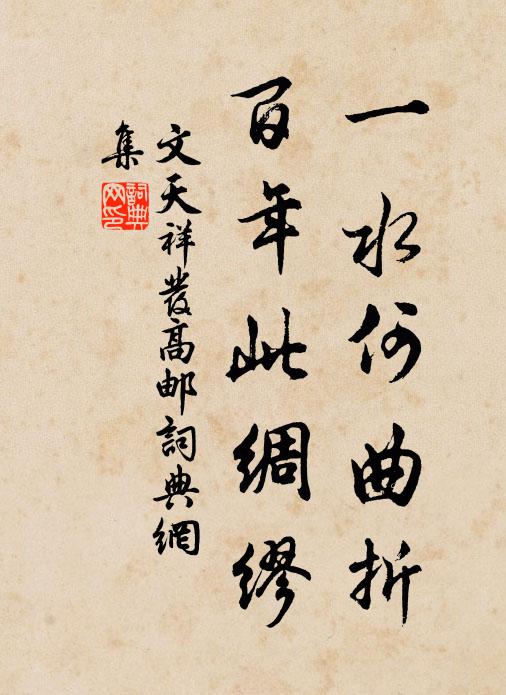 一水何曲折
百年此绸缪
文天祥發高邮詞典網
集
詞典网印